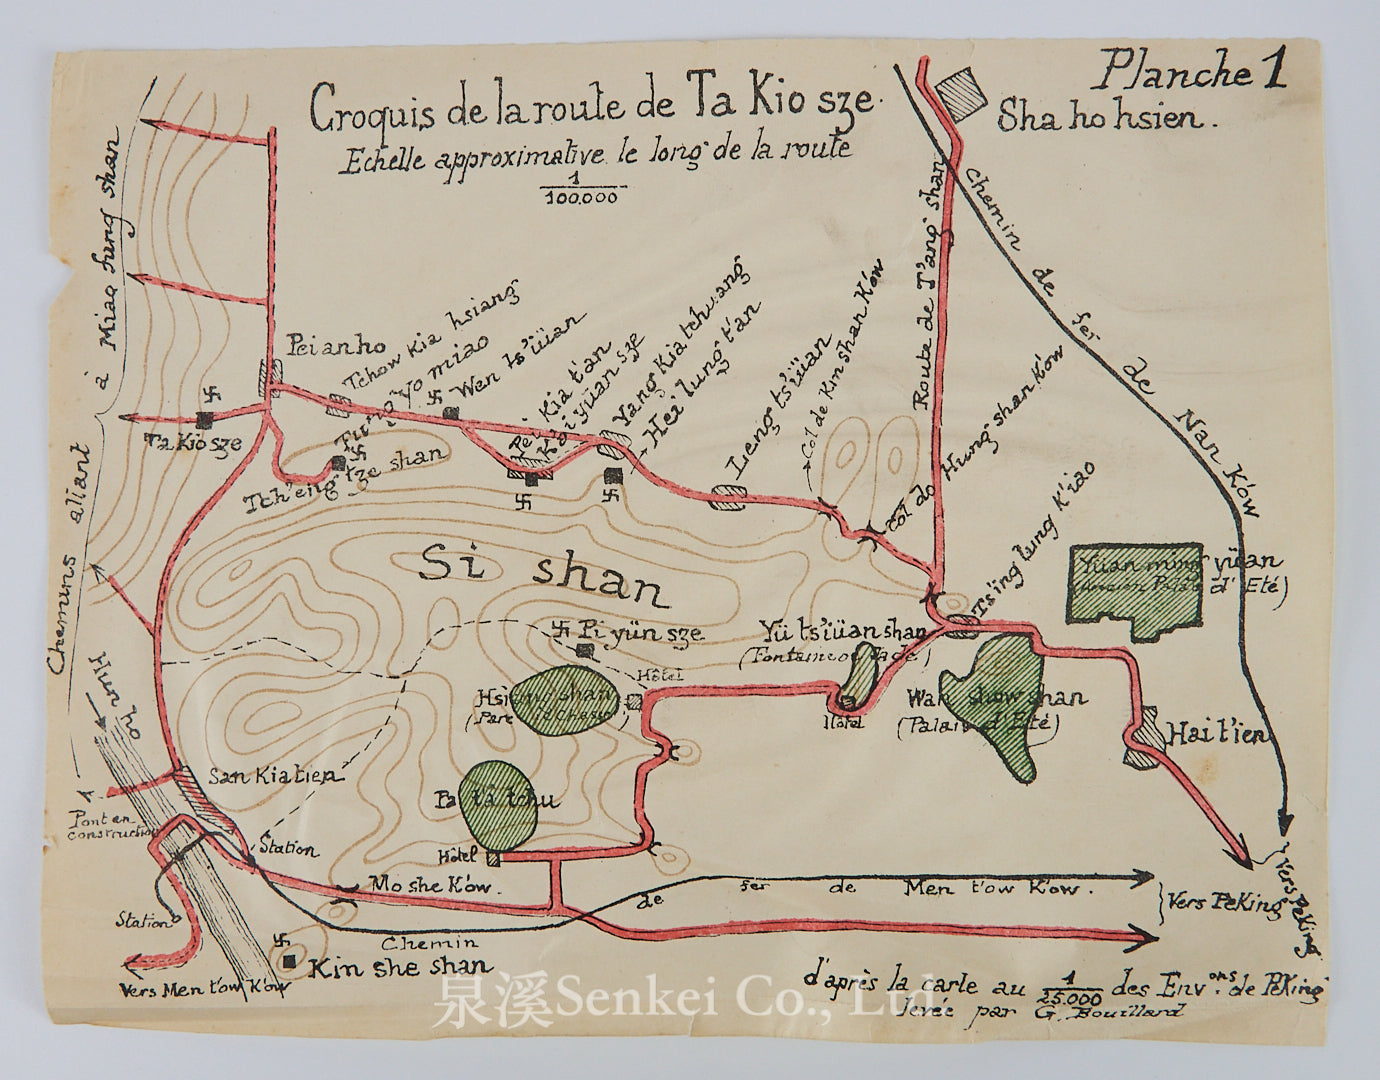 Planche 1
Croquis de la route de Ta Kio sze.
Echelle approximative le long de la route
1
100.000
Sha ho hsien.
Chemin de fer de Nan K'ow
Route de T'ang shan
Chemins allant à Miao fung shan
Peianho
Tchow Kia hsiang
Wen ts'iüan
Pei Kia t'an
Yang Kia tchuang
Hei lung t'an
Leng ts'iüan
Col de Kin shan K'ow
Col de Hung shan K'ow
Ts'ing lung K'iao
Ta Kio sze
Tch'eng tze shan
Si shan
Yüan ming yüan
(ancien Palais d'Eté)
Pi yün sze
Yü ts'iüan shan
(Fontaine de Jade)
Hôtel
Hôtel
Wan show shan
(Palais d'Eté)
Hai t'ien
Hsiang shan
(Parc de Chasse)
Hun ho
San Kia tien
Pa ta tchu
Hôtel
Pont en
construction
Station
Mo she K'ow.
Chemin de fer de Men t'ow K'ow.
Vers PeKing
Vers PeKing
Station
Kin she shan
Vers Men t'ow K'ow
d'après la carte au 1/25.000 des Env.ons de PéKing
levée par G. Bouillard
泉溪Senkei Co., Ltd.